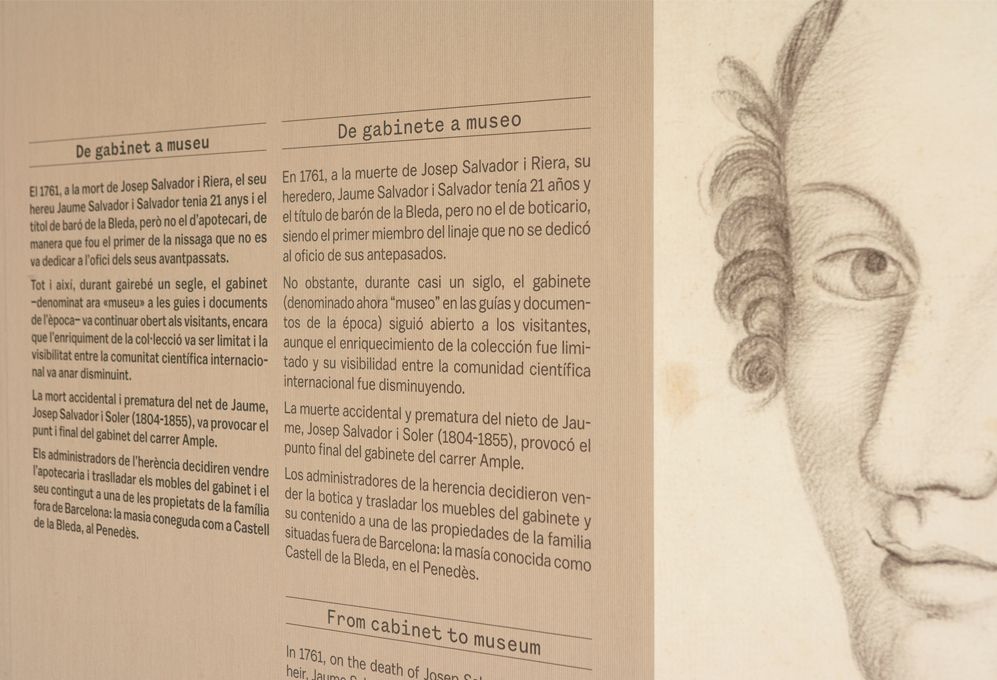 De gabinet a museu
El 1761, a la mort de Josep Salvador i Riera, el seu
hereu Jaume Salvador i Salvador tenia 21 anys i el
títol de baró de la Bleda, però no el d'apotecari, de
manera que fou el primer de la nissaga que no es
va dedicar a l'ofici dels seus avantpassats.
Tot i així, durant gairebé un segle, el gabinet
–denominat ara «museu» a les guies i documents
de l'època– va continuar obert als visitants, encara
que l'enriquiment de la col·lecció va ser limitat i la
visibilitat entre la comunitat científica internacio-
nal va anar disminuint.
La mort accidental i prematura del net de Jaume,
Josep Salvador i Soler (1804-1855), va provocar el
punt i final del gabinet del carrer Ample.
Els administradors de l'herència decidiren vendre
l'apotecaria i traslladar els mobles del gabinet i el
seu contingut a una de les propietats de la família
fora de Barcelona: la masia coneguda com a Castell
de la Bleda, al Penedès.
De gabinete a museo
En 1761, a la muerte de Josep Salvador i Riera, su
heredero, Jaume Salvador i Salvador tenía 21 años y
el título de barón de la Bleda, pero no el de boticario,
siendo el primer miembro del linaje que no se dedicó
al oficio de sus antepasados.
No obstante, durante casi un siglo, el gabinete
(denominado ahora "museo" en las guías y documen-
tos de la época) siguió abierto a los visitantes,
aunque el enriquecimiento de la colección fue limi-
tado y su visibilidad entre la comunidad científica
internacional fue disminuyendo.
La muerte accidental y prematura del nieto de Jau-
me, Josep Salvador i Soler (1804-1855), provocó el
punto final del gabinete del carrer Ample.
Los administradores de la herencia decidieron ven-
der la botica y trasladar los muebles del gabinete y
su contenido a una de las propiedades de la familia
situadas fuera de Barcelona: la masía conocida como
Castell de la Bleda, en el Penedès.
From cabinet to museum
In 1761, on the death of Josep
heir, Jaume